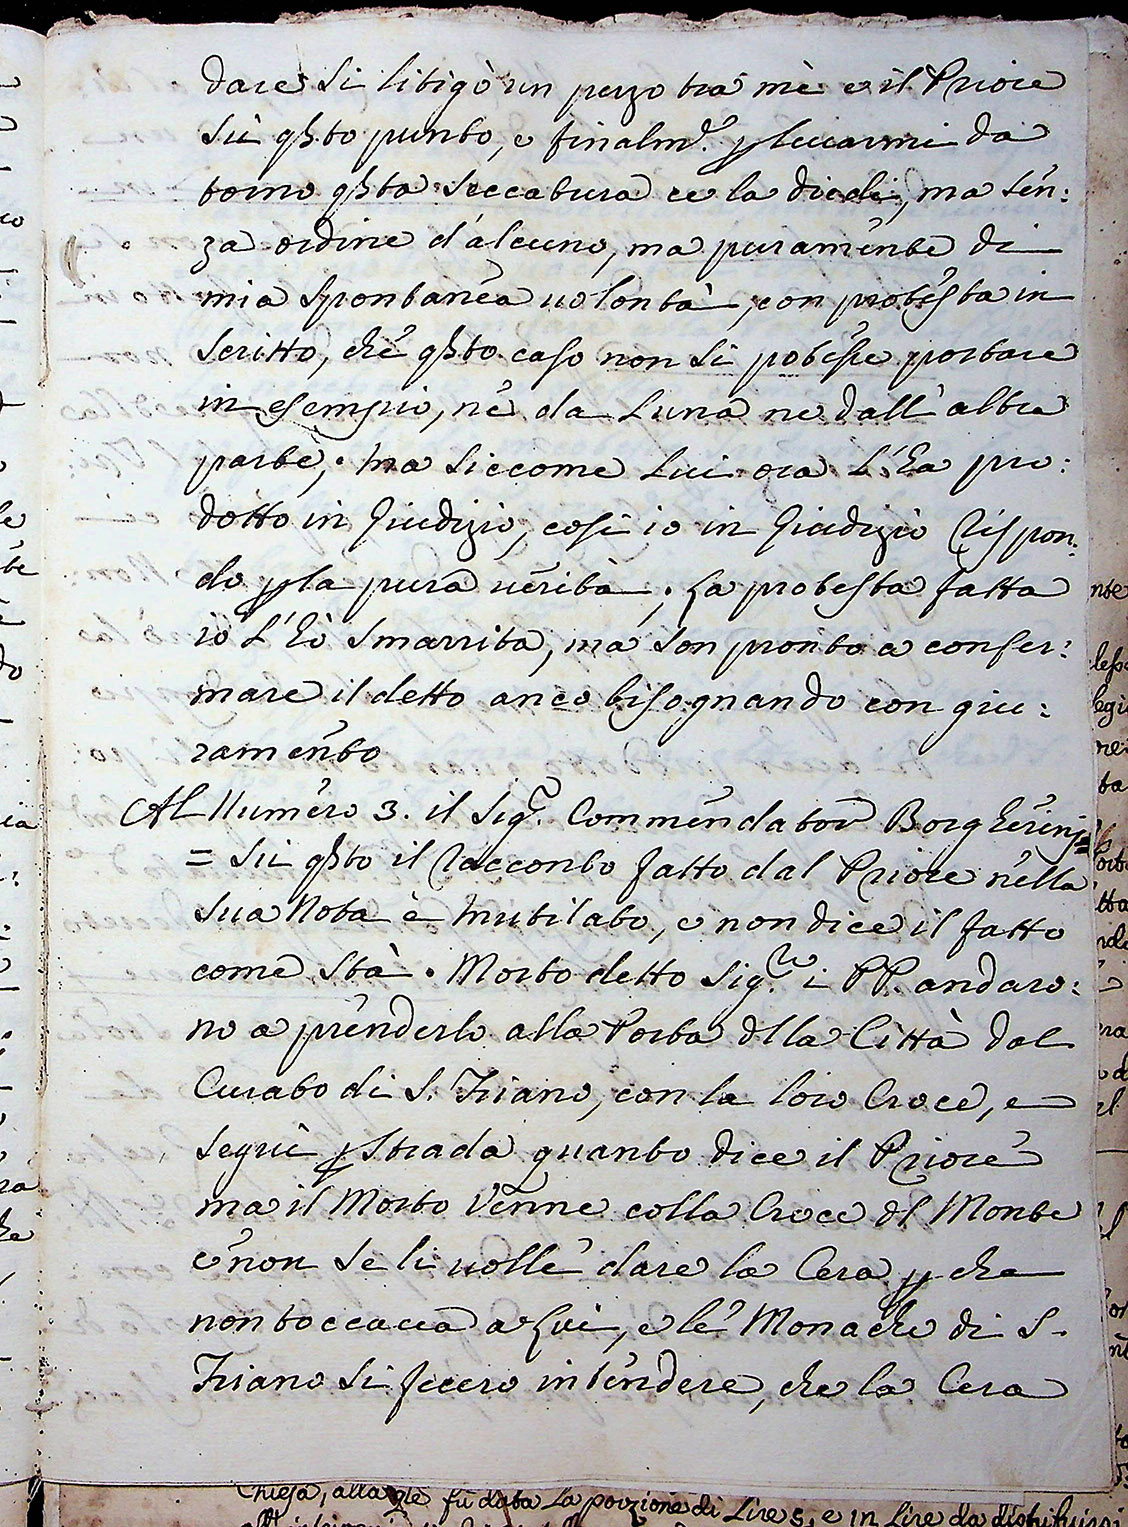 dare si litigò un pezzo tra mè e il Priore
sù qsto punto, e finalm.e p levarmi da
torno qsta seccatura ce la diedi, ma sen:
za ordine d'alcuno, ma puramente di
mia spontanea uolontà, con protesta in
scritto, che qsto caso non si potesse portare
in esempio, nè da L'una ne dall'altra
parte, ma siccome Lui ora L'ha pro:
dotto in Giudizio, così io in Giudizio rispon:
do p la pura uerità. La protesta fatta
io L'hò smarrita, ma son pronto a confer:
mare il detto anco bisognando con giu:
ramento
Al Numero 3. il Sig.r Commendator Borgherini
= Sù qsto il racconto fatto dal Priore nella
sua Nota è mutilato, e non dice il fatto
come stà. Morto detto Sig.re i PP. andaro:
no a prenderlo alla Porta dlla Città dal
Curato di S. Friano, con la loro Croce, e
seguì p strada quanto dice il Priore
ma il Morto venne colla Croce dl Monte
e non se li uolle dare la Cera p che
non toccaua a Lui, e le Monache di S.
Friano si fecero intendere, che la Cera
Chiesa, alla qle fù data La porzione di Lire 5, e in Lire da distribuirsi